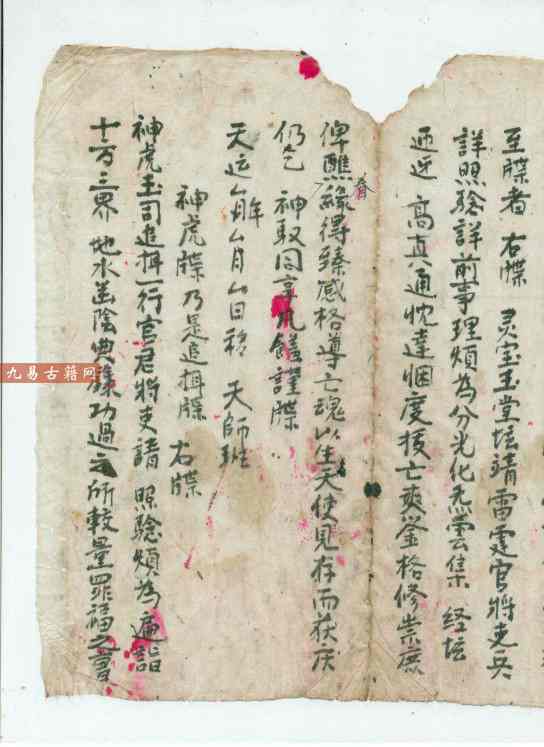 至牒者 右牒 灵宝玉堂坛靖雷霆官将吏兵
詳照驗詳前事理煩為分光化炁雲集 经坛
迎迓 高真通忱達悃度拔亡爽鉴格修崇庶
俾醮緣得臻感格導亡魂以生天使見存而获庆
眷
仍乞 神馭同享凡饈謹牒
天运厶年厶月厶日稿 天師班
神虎牒乃是追摄牒 右牒
神虎玉司追摄一行官君將吏請 照驗煩為遍詣
十方三界 地水幽陰典錄功過之所較量罪福之
九易古籍网